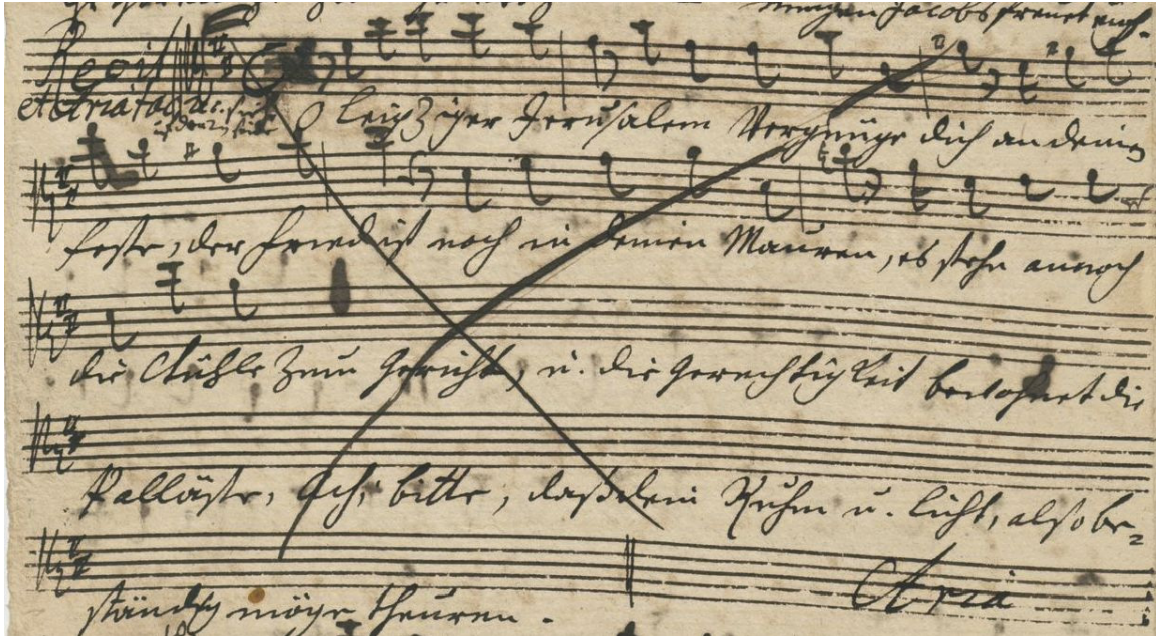 Recit
et Aria tacet
Leipziger Jerusalem Vergnüge dich an deinem
feste, der friede ist noch in deinen Mauren, es stehn annoch
die Stühle zum Gericht, u. die Gerechtigkeit bewohnet die
Palläste, Ach, bitte, daß dein Ruhm u. licht, also be=
ständig möge thauren.
Aria